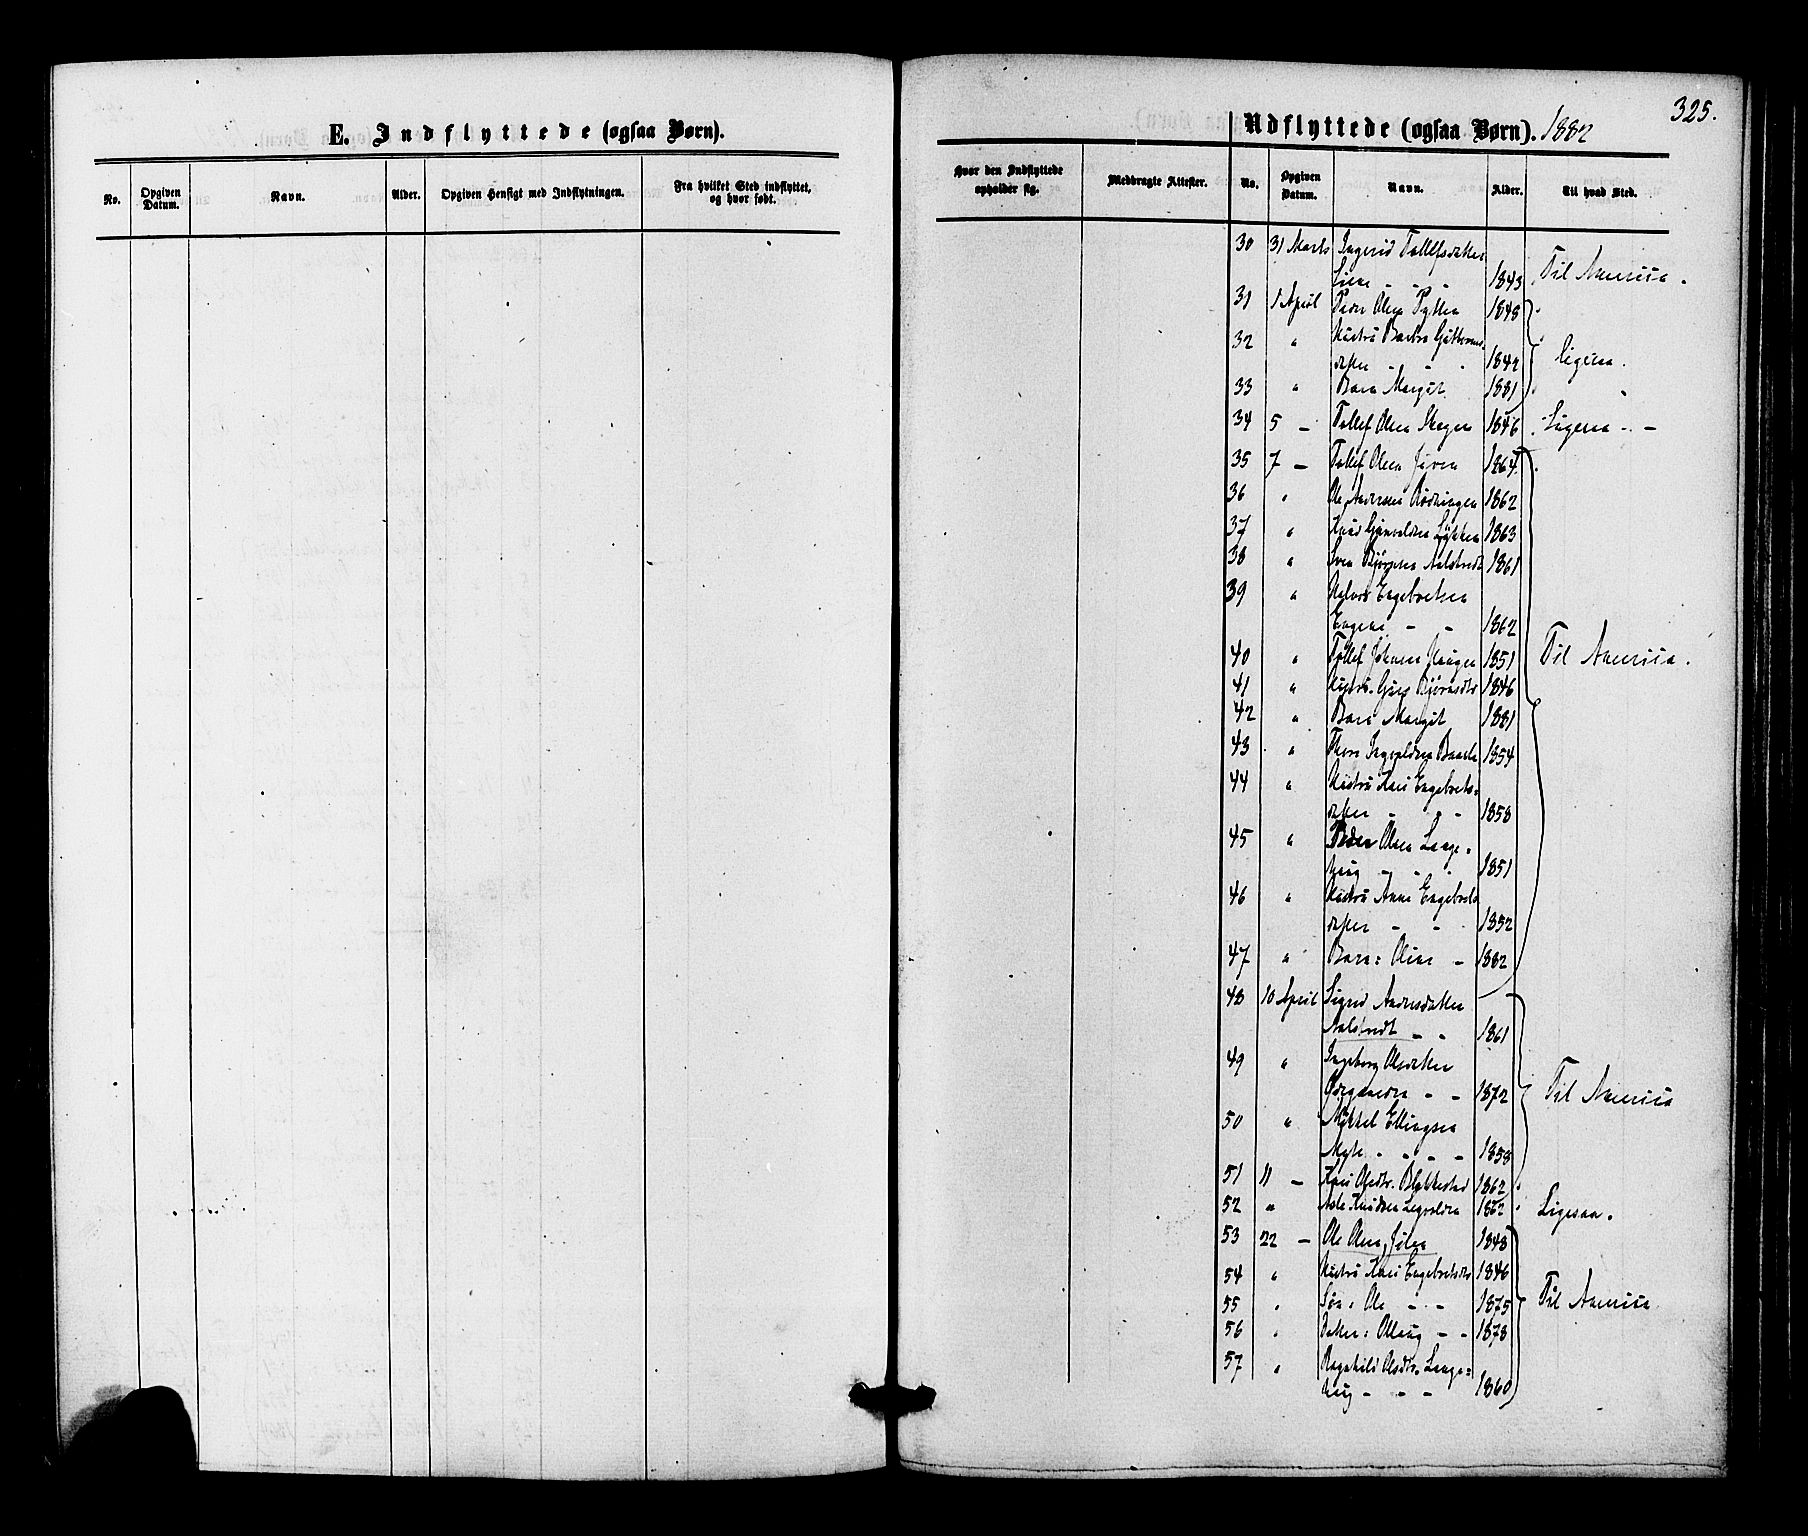 325.
E. Indflyttede (ogsaa Børn).
No.
Opgiven Datum.
Navn.
Alder.
Opgiven Hensigt med Indflytningen.
Fra hvilket Sted indflyttet, og hvor født.
Udflyttede (ogsaa Børn). 1882
Hvor den Indflyttede opholder sig.
Medbragte Attester.
No.
Opgiven Datum.
Navn.
Alder.
Til hvad Sted.
30 31 Marts Ingerid Tollefsdatter
Lien - - 1843 Til America.
31 1 April Peder Olsen 1848
32 " Hustru Guttorms-
datter - - - 1842 ligesaa.
33 " Barn Margit 1881
34 5 - Tollef Olsen Skogen 1846 Ligesaa - -
35 7 - Tollef Olsen 1864
36 " Ole Andersen Rødningen 1862
37 " Knud Løkken 1863
38 " Sven Bjørnsen 1861
39 " Halvor Engebretsen
Engene - - 1862
40 " Tollef Johnsen Haugen 1851 Til America.
41 " Hustru Guri Bjørnsdtr 1846
42 " Barn Margit 1881
43 " Thore Ingvaldsen 1854
44 " Hustru Kari Engebrets-
datter - - - 1858
45 " Peder Olsen Lange-
haug - - - 1851
46 " Hustru Anne Engebrets
datter - - 1852
47 " Barn: Oline - 1882
48 10 April Sigrid Andersdatter
- - 1861
49 " Ingeborg Olsdatter
- - 1872 Til America
50 " Mikkel Ellingsen
Myhr - - - - 1858
51 11 - Kari Olsdtr. 1862
52 " Asle Knudsen 1862 Ligesaa.
53 22 - Ole Olsen 1848
54 " Hustru Kari Engebretsdtr 1846
55 " Søn: Ole - - 1875 Til America
56 " Datter: Ollaug - - 1878
57 " Ragnhild Olsdtr. Lange-
haug - - - 1860